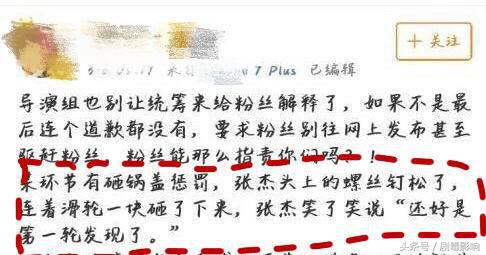 + 关注
7 Plus 已编辑
导演组也别让统筹来给粉丝解释了，如果不是最
后连个道歉都没有，要求粉丝别往网上发布甚至
驱赶粉丝，粉丝能那么指责你们吗？！
某环节有砸锅盖惩罚，张杰头上的螺丝钉松了，
连着滑轮一块砸了下来，张杰笑了笑说“还好是
第一轮发现了。”
头条号／剧曝影响